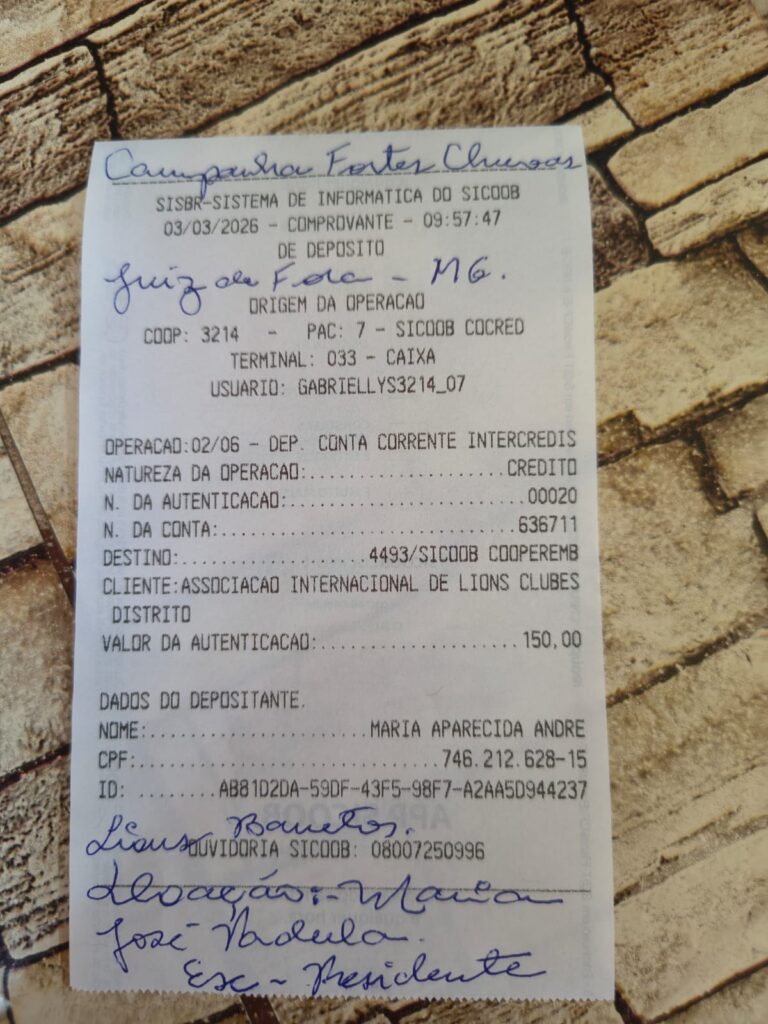 Campanha Fortes Chuvas
SISBR-SISTEMA DE INFORMATICA DO SICOOB
03/03/2026 - COMPROVANTE - 09:57:47
DE DEPOSITO
Juiz de Fora - MG.
ORIGEM DA OPERACAO
COOP: 3214 - PAC: 7 - SICOOB COCRED
TERMINAL: 033 - CAIXA
USUARIO: GABRIELLYS3214_07
OPERACAO:02/06 - DEP. CONTA CORRENTE INTERCREDIS
NATUREZA DA OPERACAO:....................CREDITO
N. DA AUTENTICACAO:........................00020
N. DA CONTA:..............................636711
DESTINO:...................4493/SICOOB COOPEREMB
CLIENTE:ASSOCIACAO INTERNACIONAL DE LIONS CLUBES
DISTRITO
VALOR DA AUTENTICACAO:....................150,00
DADOS DO DEPOSITANTE.
NOME:......................MARIA APARECIDA ANDRE
CPF:..............................746.212.628-15
ID: ........AB81D2DA-59DF-43F5-98F7-A2AA5D944237
Lions Barretos.
OUVIDORIA SICOOB: 08007250996
Doação:- Maria
José Padula.
Esc - Presidente